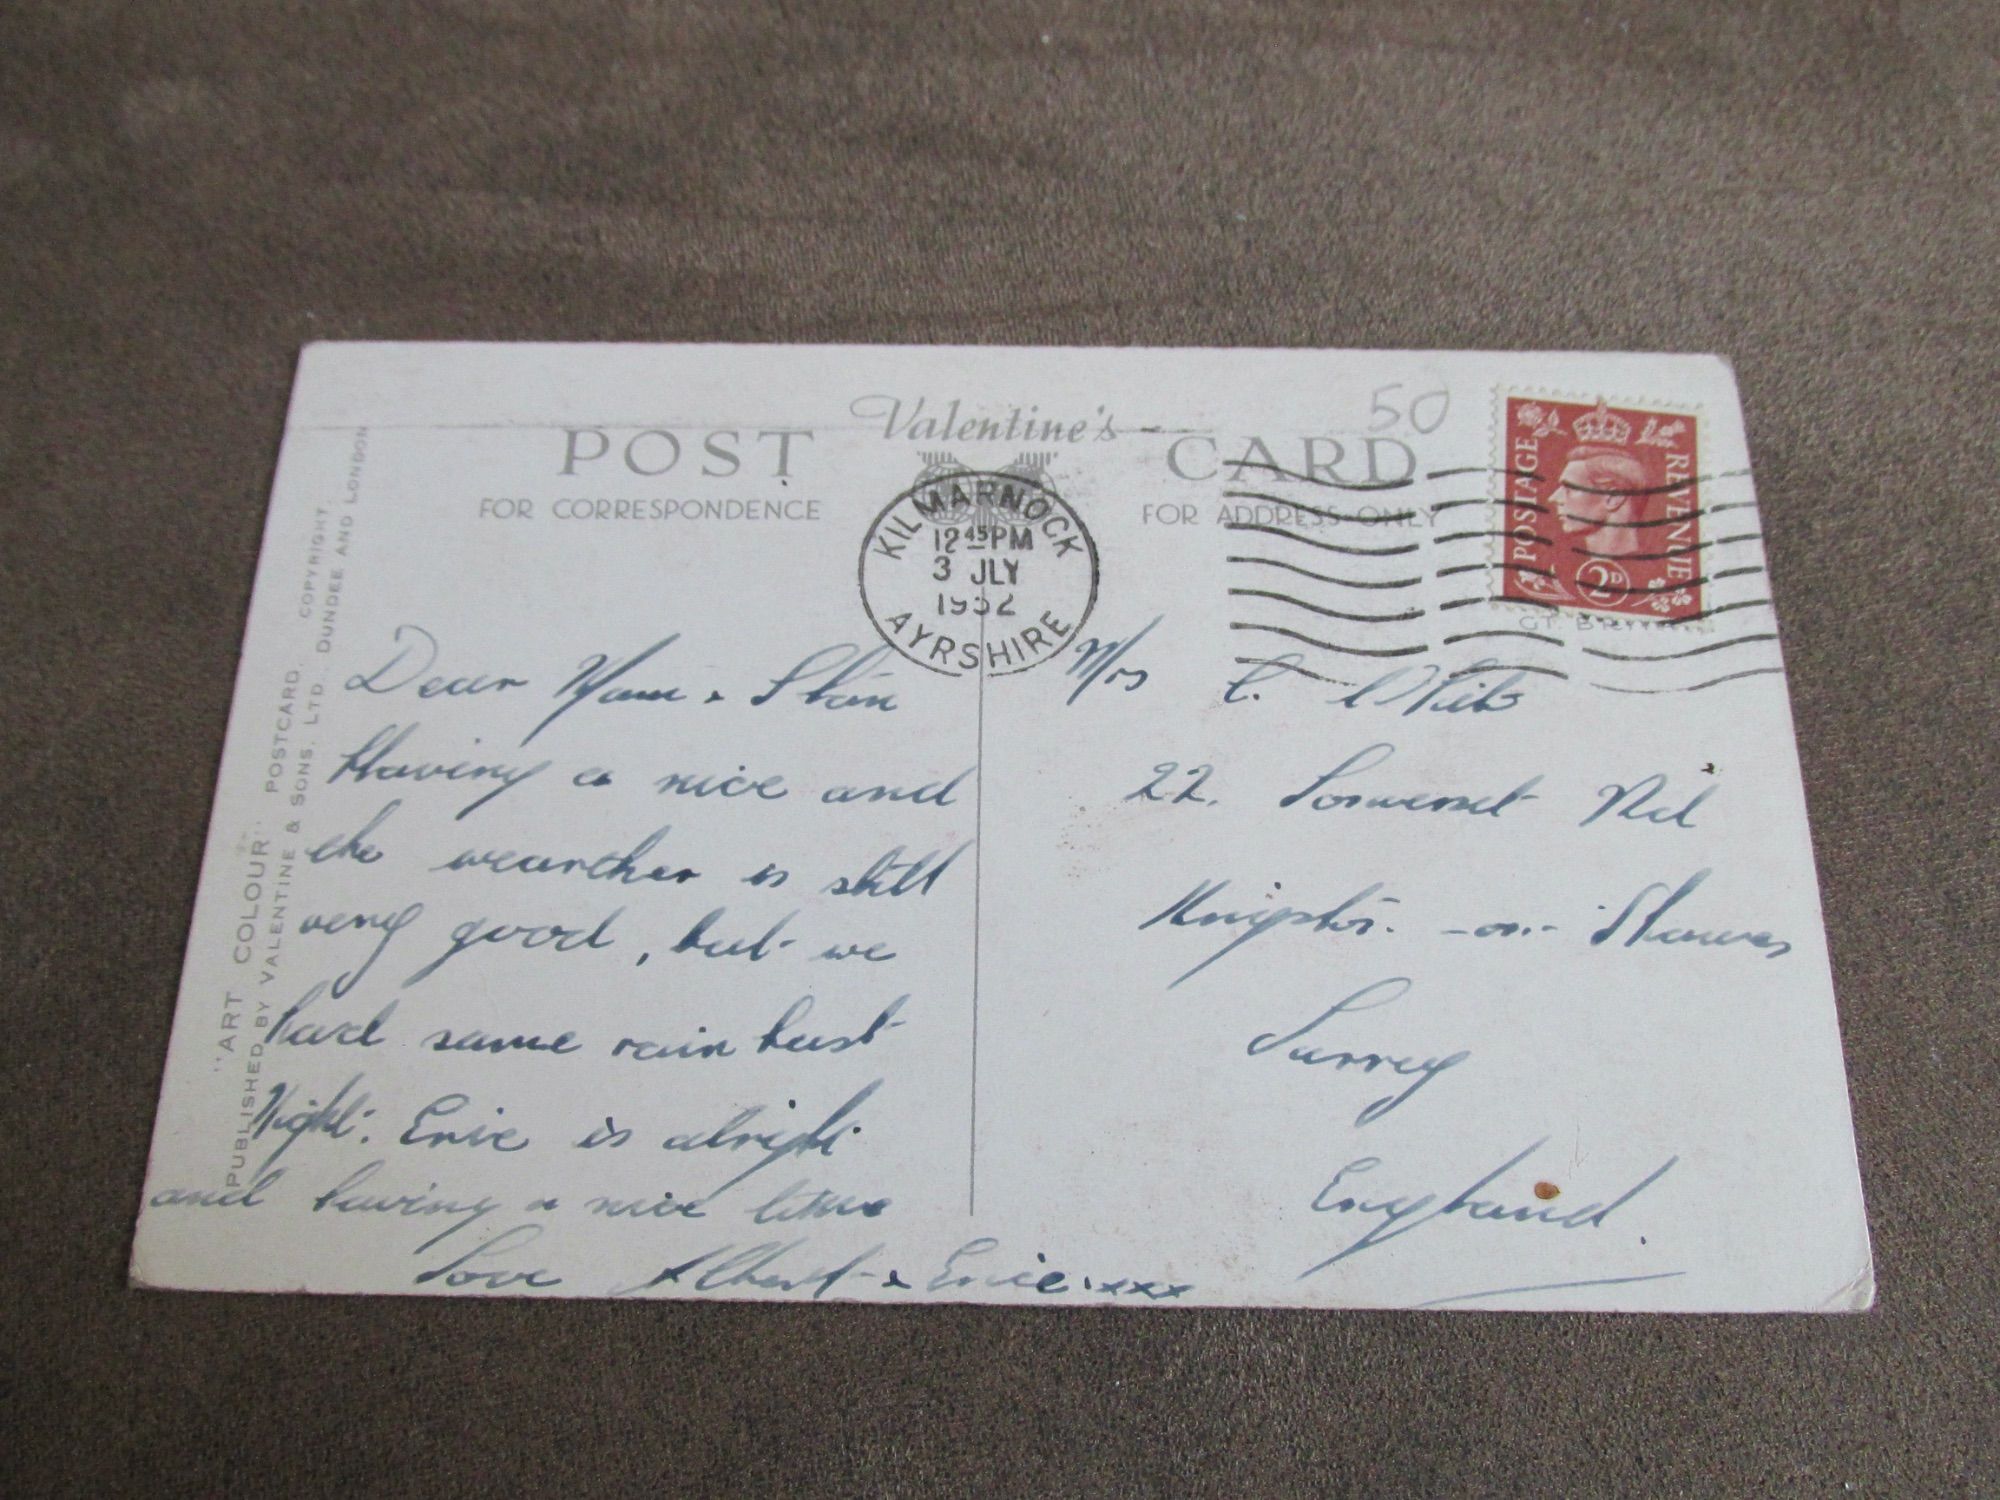 Valentine's
POST CARD
FOR CORRESPONDENCE
FOR ADDRESS ONLY
50
POSTAGE REVENUE
2D
KILMARNOCK
12 45 PM
3 JLY
1952
AYRSHIRE
"ART COLOUR" POSTCARD. COPYRIGHT.
PUBLISHED BY VALENTINE & SONS, LTD., DUNDEE AND LONDON
Dear Mam & Stan
Having a nice and
the wearther is still
very good, but we
had some rain last
Night. Ernie is alright
and having a nice time
Love Albert & Ernie. xxx
Mrs C.
22. Somerset Rd
Kingston-on-Thames
Surrey
England.